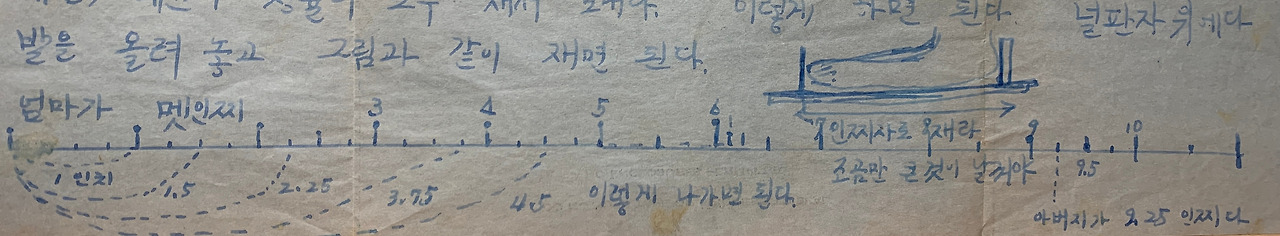 이렇게, 하면 된다. 널판자 위에다
발을 올려 놓고 그림과 같이 재면 된다.
멧인찌
3 4 5 6 9 10
인찌자로 재라
1인치 1.5 2.25 3.75 4.5 이렇게 나가면 된다.
조금만 큰것이
9.5
아버지가 9.25 인찌다